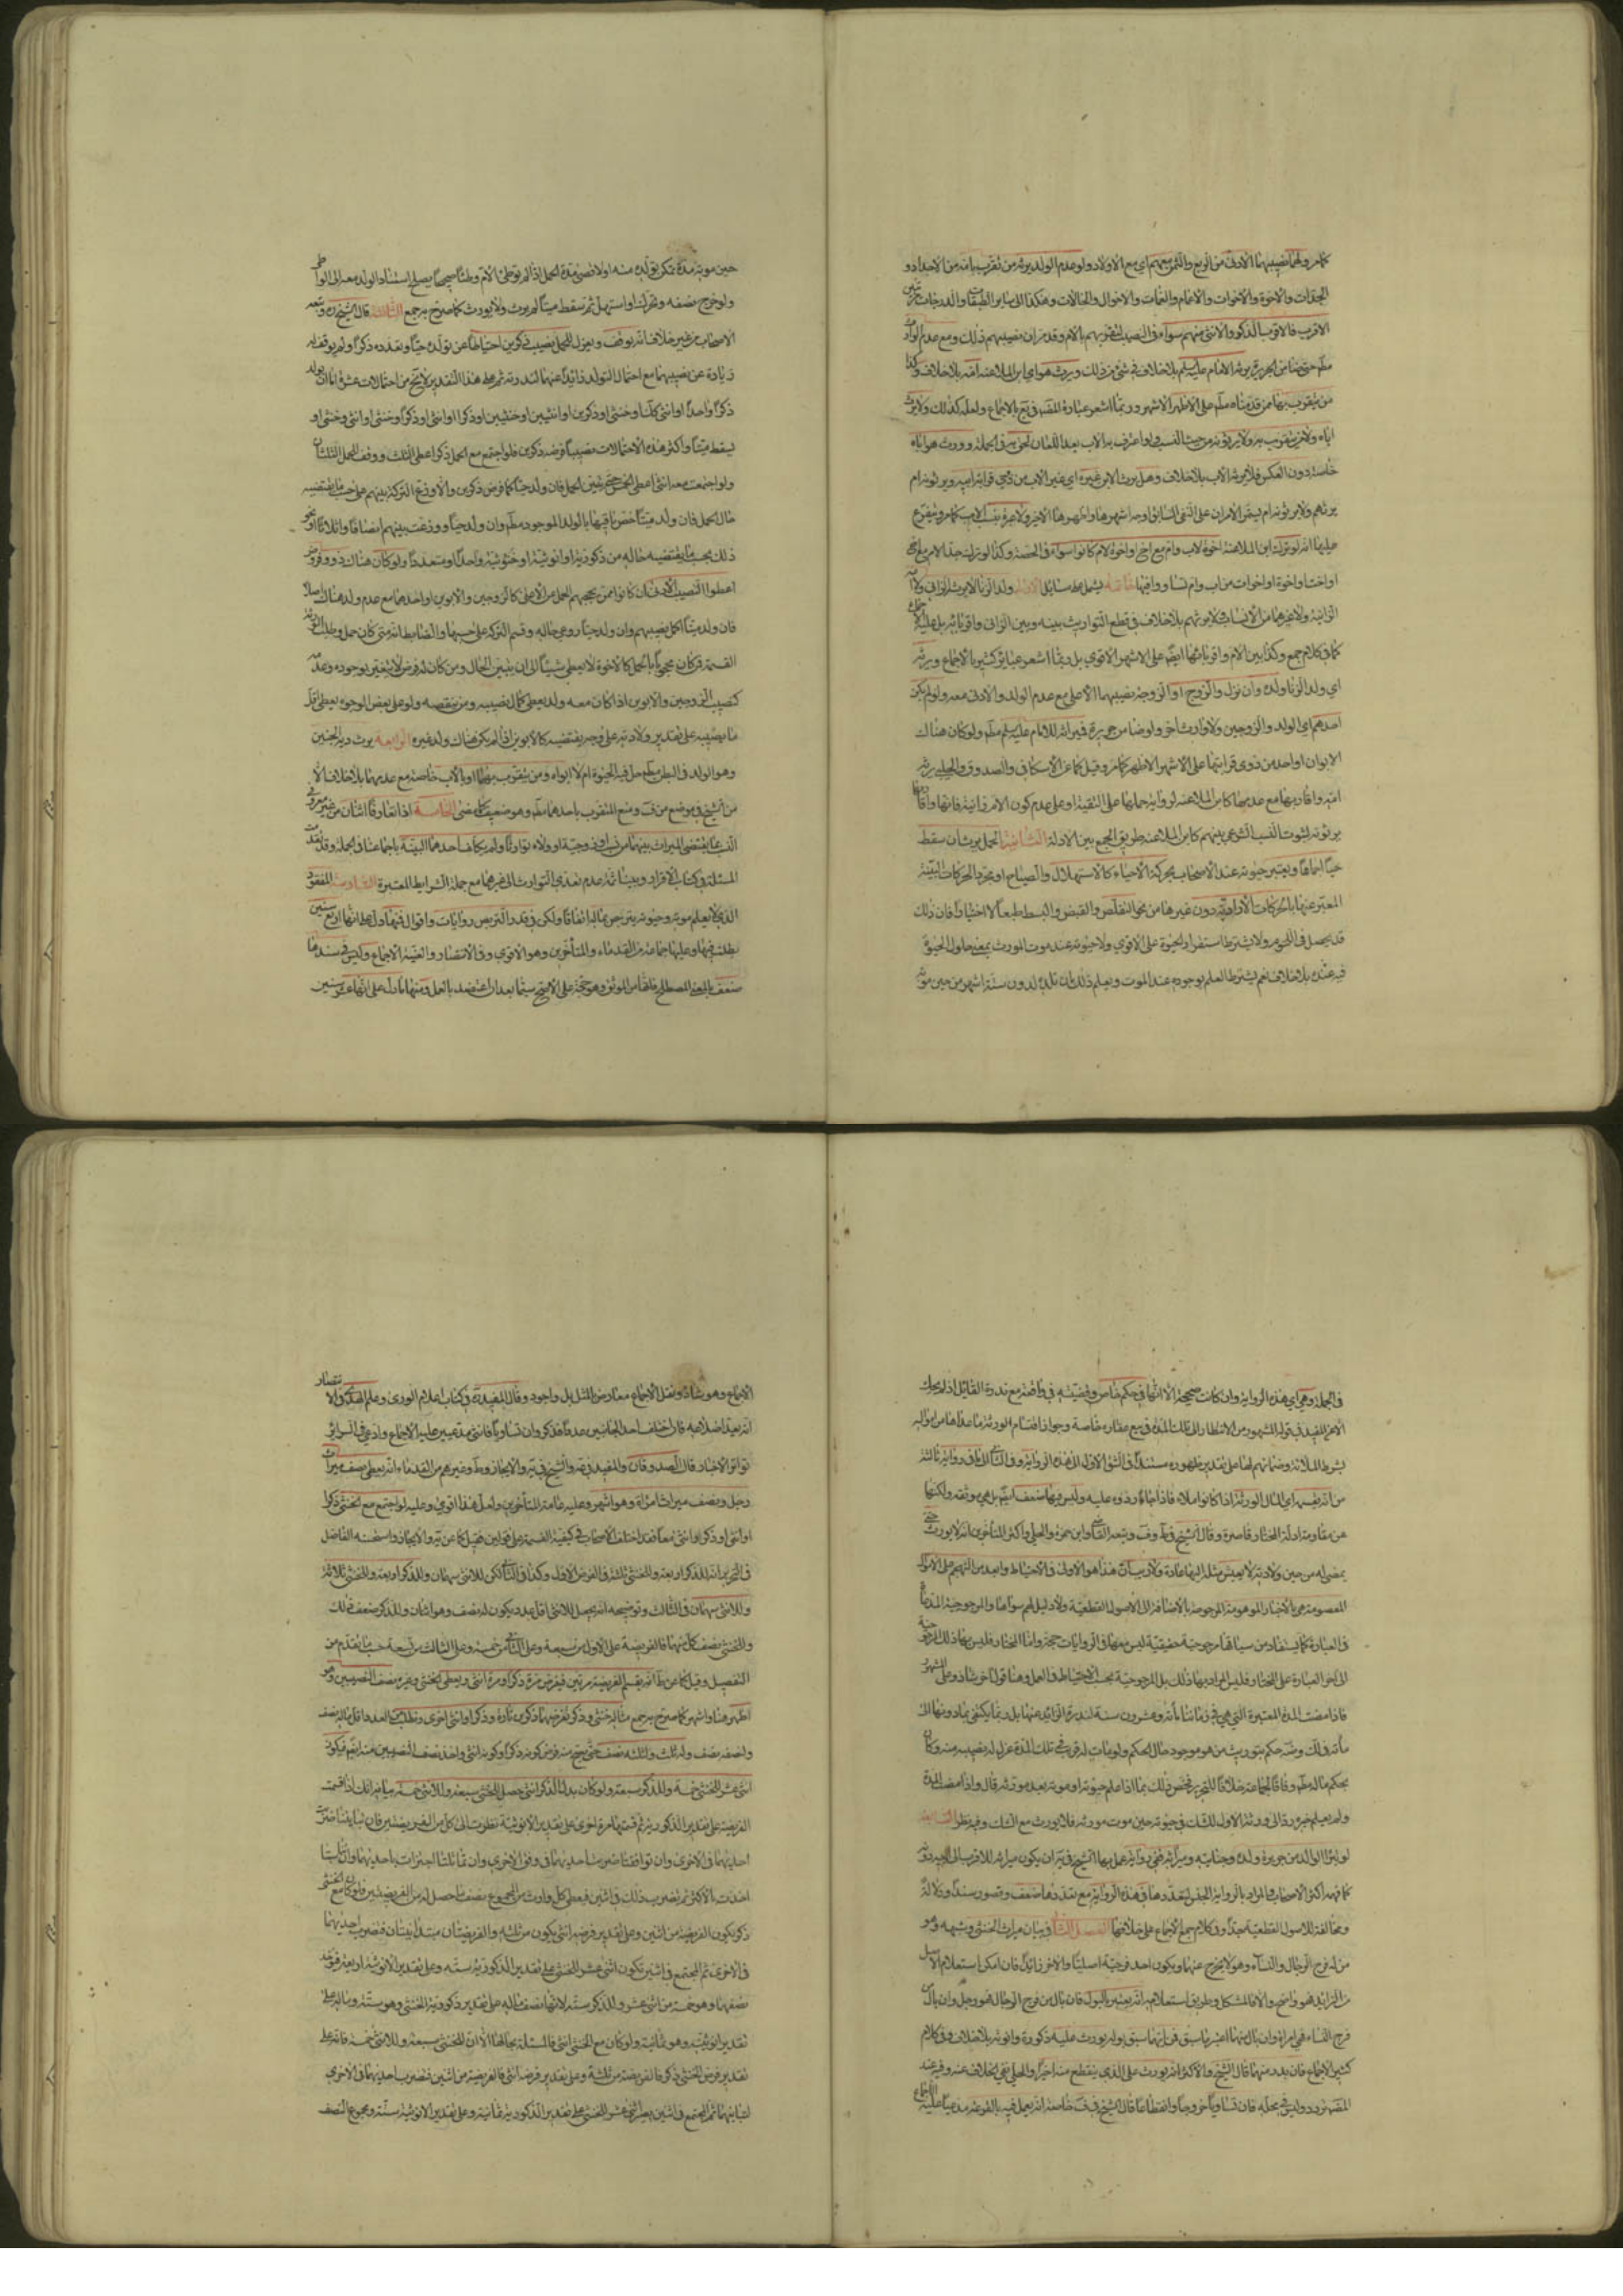 كما مر ولهما نصيبهما الأدنى من الربع والثمن معهم اي مع الاولاد ولو عدم الولد يرثه من تقرب بامه من الاجداد و
الجدات والاخوة والاخوات والاعمام والعمات والاخوال والخالات وهكذا الى ساير الطبقات والدرجات مرتبين
الاقرب فالاقرب الذكر والانثى منهم سواء في النصيب لتقربهم بالام وقد مر ان نصيبهم ذلك ومع عدم الوارث
من يتقرب بهما ممن قدمناه مطم على الاظهر الاشهر وربما اشعر عبارة بالاجماع ولعله كذلك ولا يرث
اباه ولا من يتقرب به ولا يرثونه من حيث النسب فلو اعترف به الاب بعد اللعان لحق به في الجملة وورث هو اباه
خاصة دون العكس فلا يرثه الاب بلا خلاف وهل يرث الابن غيره اي غير الاب من ذوي قرابة ابيه ويرثونه ام
يرثهم ولا يرثونه ام يبقى الامران على النفي السابق اوجه اشهرها واظهرها الاخير ولا عبرة بنسب الاب كما مر ويتفرع
عليهما انه لو ترك ابن الملاعنة اخوة لاب وام مع اخ او اخوة لام كانوا سواء في الحصة وكذا لو ترك جدا لام مع اخ
او اخت او اخوة او اخوات من اب وام تساووا فيها خاتمة يشتمل على مسائل الاولى ولد الزنا لا يرثه الزاني ولا
الزانية ولا غيرهما من الانساب ولا يرثهم بلا خلاف في قطع التوارث بينه وبين الزاني واقربائه بل عليه الاجماع
كما في كلام جمع وكذا بين الام واقربائها ايضا على الاشهر الاقوى بل ربما اشعر عبائر كثير بالاجماع ويرثه
اي ولد الزنا ولده وان نزل والزوج او الزوجة نصيبهما الاعلى مع عدم الولد والادنى معه ولو لم يكن
احدهم اي الولد والزوجين ولا وارث آخر ولو ضامن جريرة فميراثه للامام عليه السلام مطم ولو كان هناك
الابوان او احد من ذوي قرابتهما على الاشهر الاظهر كما مر وقيل كما عن الاسكافي والصدوق والحلبي يرثه
امه واقاربها مع عدمها كابن الملاعنة لرواية حملها على التقية او على عدم كون الام زانية فانها واقاربها
يرثونه لثبوت النسب الشرعي بينهم كابن الملاعنة طريق الجمع بين الادلة الثانية الحمل يرث ان سقط
حيا اجماعا ويعتبر حيوته عند الاصحاب بحركة الاحياء كالاستهلال والصياح او بمجرد الحركات البينة
المعتبر عنها بالحركات الارادية دون غيرها من نحو التقلص والقبض والبسط طبعا لا اختيارا فان ذلك
قد يحصل في اللحوم ولا يشترط استقرار الحيوة على الاقوى ولا حيوته عند موت المورث بمعنى حلول الحيوة
فيه عنده بلا خلاف نعم يشترط العلم بوجوده عند الموت ويعلم ذلك بان تلده لدون ستة اشهر من حين موته
حين موته مدة يمكن تولده منه اولاقصى مدة الحمل اذا لم توطئ الام وطئا صحيحا يصلح استناد الولد معه الى الواطي
ولو خرج نصفه وتحرك او استهل ثم سقط ميتا لم يرث ولا يورث كما صرح به جمع الثالثة قال الشيخ وتبعه
الاصحاب من غير خلاف انه يوقف ويعزل للحمل نصيب ذكرين احتياطا عن تولده حيا وتعدده ذكرا ولم يوقف له
زيادة عن نصيبهما مع احتمال التولد زائدا عنهما لندرته ثم على هذا التقدير لا يخ من احتمالات عشرة اما ان يولد
ذكرا واحدا او انثى كذلك او خنثى او ذكرين او انثيين او خنثيين او ذكرا او انثى او ذكرا وخنثى او انثى وخنثى او
يسقط ميتا واكثر هذه الاحتمالات نصيبا فرضه ذكرين فلو اجتمع مع الحمل ذكر اعطي الثلث ووقف للحمل الثلثان
ولو اجتمعت معه انثى اعطي الخمس حتى يتبين الحمل فان ولد حيا كما فرض ذكرين والا وزع التركة بينهم على حسب ما يقتضيه
حال الحمل فان ولد ميتا خص باقيها بالولد الموجود مطم وان ولد حيا ووزعت بينهم انصافا او اثلاثا او نحو
ذلك بحسب ما يقتضيه حاله من ذكوريته او انوثيته او خنوثيته واحدا او متعددا ولو كان هناك ذو فروض
اعطوا النصيب الادنى ان كانوا ممن يحجبهم الحمل عن الاعلى كالزوجين والابوين او احدهما مع عدم ولد هناك اصلا
فان ولد ميتا اكمل نصيبهم وان ولد حيا روعي حاله وقسم التركة على حسبها والضابط انه متى كان حمل وطلب الورثة
القسمة فمن كان محجوبا بالحمل كالاخوة لا يعطى شيئا الى ان يتبين الحال ومن كان له فرض لا يتغير بوجوده وعدمه
كنصيب الزوجين والابوين اذا كان معه ولد يعطى كمال نصيبه ومن ينقصه ولو على بعض الوجوه يعطى اقل
ما يصيبه على تقدير ولادته على وجه يقتضيه كالابوين اذا لم يكن هناك ولد غيره الرابعة يرث دية الجنين
وهو الولد في البطن مطم حل فيه الحيوة ام لا ابواه ومن يتقرب بهما او بالاب خاصة مع عدمهما بلا خلاف الا
من الشيخ في موضع من ف ومنع المتقرب باحدهما مطم وهو ضعيف كما مضى الخامسة اذا تعارفا اثنان من غير معرفة
النسب بما يقتضي الميراث بينهما من نسب او زوجية او ولاء توارثا ولم يكلف احدهما البينة باجماعنا في الجملة وقد تقدمت
المسئلة في كتاب الاقرار وبينا ثمة عدم تعدي التوارث الى غيرهما مع جملة الشرايط المعتبرة السادسة المفقود
الذي لا يعلم موته وحيوته يتربص بماله اتفاقا ولكن في قدر التربص روايات واقوال فمنها ما دل على انها اربع سنين
يطلب فيها وعليها جماعة من القدماء والمتأخرين وهو الاقوى وفاقا للانتصار والغنية الاجماع وليس في سندها
ضعف بالمعنى المصطلح فانها من الموثق وهو حجة على الاصح سيما بعد ان اعتضد بالعمل ومنها ما دل على انها عشر سنين
في الجملة وهي اي هذه الرواية وان كانت صحيحة الا انها في حكم خاص وقضية في واقعة مع ندرة القائل اذ لم يحك
الا عن المفيد في قوله المشهور من الانتظار الى تلك المدة في بيع عقاره خاصة وجواز اقتسام الورثة ما عداها من امواله
بشرط الملائة وضمانهم لها على تقدير ظهوره مستندا في الشق الاول الى هذه الرواية وفي الثاني الى ما في رواية ثالثة
من انه يقسم اي المال الورثة اذا كانوا ملاء فاذا جاء ردوه عليه وليس فيها ضعف ايضا بل هي موثقة ولكنها
عن مقاومة ادلة المختار قاصرة وقال الشيخ في ط وف وتبعه القاضي وابن حمزة والحلي واكثر المتأخرين انه لا يورث حتى
يمضي له من حين ولادته لا يعيش مثله اليها عادة ولا ريب ان هذا هو الاولى في الاحتياط وابعد من التهجم على الاموال
المعصومة بالاخبار الموهومة المرجوحة بالاضافة الى الاصول القطعية ولا دليل لهم سواها والمرجوحية المدعاة
في العبارة كما يستفاد من سياقها مرجوحية حقيقية ليس معها في الروايات حجة واما المختار فليس بهذا ذلك
فاذا مضت المدة المعتبرة التي هي في زماننا مائة وعشرون سنة لندرة الزائد عنها بل ربما يكتفى بما دونها الى
مائة حكم بتوريث من هو موجود حال الحكم ولو مات له قريب في تلك المدة عزل له نصيبه منه وكان
بحكم ماله مطم وفاقا لجماعة خلافا للتحرير فخص ذلك بما اذا علم حيوته او موته بعد مورثه قال واذا مضت المدة
ولم يعلم خبره رد الى ورثة الاول للشك في حيوته حين موت مورثه فلا يورث مع الشك وفيه نظر السابعة
لو تبرأ الوالد من جريرة ولده وجنايته وميراثه ففي رواية عمل بها الشيخ في ية ان يكون ميراثه للاقرب الى ابيه دونه
كما فهمه اكثر الاصحاب والمراد بالرواية الجنس لتعددها وفي هذه الرواية مع تعددها ضعف وقصور سندا ودلالة
ومخالفة للاصول القطعية جدا وفي كلام جمع الاجماع على خلافها الفصل الثاني في بيان ميراث الخنثى وشبهه وهو
من له فرج الرجال والنساء وهو لا يخرج عنهما ويكون احد فرجيه اصليا والاخر زائدا فان امكن استعلام الاصل
من الزايد فهو واضح والا فالمشكل وطريق استعلامه انه يعتبر بالبول فان بال من فرج الرجال فهو رجل وان بال من
فرج النساء فهي امراة وان بال منهما اعتبر بما سبق فمن ايهما سبق بوله يورث عليه ذكورة وانوثة بلا خلاف وفي كلام
كثير الاجماع فان بدر منهما قال الشيخ والاكثر انه يورث على الذي ينقطع منه اخيرا والحلي نفى الخلاف عنه وفيه عند
المص تردد وليس في محله فان تساويا خروجا وانقطاعا قال الشيخ في ف خاصة انه يعمل فيه بالقرعة مدعيا عليه الاجماع
الاجماع وهو شاذ ونقل الاجماع معارض بالمثل بل واجود وقال المفيد في كتاب اعلام الورى وعلم الهدى والانتصار
انه يعد اضلاعه فان اختلف احد الجانبين عددا فذكر وان تساويا فانثى مدعيين عليه الاجماع وادعى في السرائر
تواتر الاخبار قال الصدوقان والمفيد في والشيخ في ية والايجاز وط وغيرهم من القدماء انه يعطى نصف ميراث
رجل ونصف ميراث امراة وهو اشهر وعليه عامة المتأخرين ولعل هذا اقوى وعليه لو اجتمع مع الخنثى ذكر
او انثى او ذكر او انثى معا فقد اختلف الاصحاب في كيفية القسمة على قولين فقيل كما عن ية والايجاز واستحسنه الفاضل
في التحرير انه للذكر اربعة وللخنثى ثلثة في الفرض الاول وكذا في الثاني لكن للانثى سهمان وللذكر اربعة وللخنثى ثلاثة
وللانثى سهمان في الثالث وتوضيحه انه يجعل للانثى اقل عدد يكون له نصف وهو اثنان وللذكر ضعف ذلك
وللخنثى نصف كل منهما فالفريضة على الاول من سبعة وعلى الثاني من خمسة وعلى الثالث من تسعة حسب ما تقدم من
التفصيل وقيل كما عن ط انه يقسم الفريضة مرتين فيفرض مرة ذكرا ومرة انثى ويعطى الخنثى وغيره نصف النصيبين وهو
اظهر هنا واشهر كما صرح به جمع مثاله خنثى وذكر تفرضهما ذكرين تارة وذكر او انثى اخرى وتطلب اقل ما له نصف
ولنصفه نصف وله ثلث ولثلثه نصف حتى يصح منه فرض كونه ذكرا وكونه انثى واخذ نصف النصيبين منه ايضا فيكون
اثنى عشر للخنثى خمسة وللذكر سبعة ولو كان بدل الذكر انثى حصل للخنثى سبعة وللانثى خمسة بيانه انك اذا قسمت
الفريضة على تقدير الذكورية ثم قسمتها مرة اخرى على تقدير الانوثية نظرت الى كل من الفريضتين فان تباينتا ضربت
احديهما في الاخرى وان توافقتا ضربت احديهما في وفق الاخرى وان تماثلتا اجتزات باحديهما وان تناسبتا
اخذت بالاكثر ثم تضرب ذلك في اثنين فيعطى كل وارث من المجموع نصف ما حصل له من الفريضتين فلو كان مع الخنثى
ذكر يكون الفريضة من اثنين وعلى تقدير فرضه انثى يكون من ثلثة والفريضتان متباينتان فتضرب احديهما
في الاخرى ثم المجتمع في اثنين تكون اثنى عشر للخنثى على تقدير الذكورية ستة وعلى تقدير الانوثية اربعة فتؤخذ
نصفهما وهو خمسة من اثنى عشر وللذكر سبعة لانها نصف ماله على تقدير ذكورية الخنثى وهو ستة وماله على
تقدير انوثيته وهو ثمانية ولو كان مع الخنثى انثى فالمسئلة بحالها الا ان للخنثى سبعة وللانثى خمسة فانه على
تقدير فرض الخنثى ذكر فالفريضة من ثلثة وعلى تقدير فرضه انثى فالفريضة من اثنين فتضرب احديهما في الاخرى
لتباينهما ثم المجتمع في اثنين يصير اثنى عشر للخنثى على تقدير الذكورية ثمانية وعلى تقدير الانوثية ستة ومجموع النصف